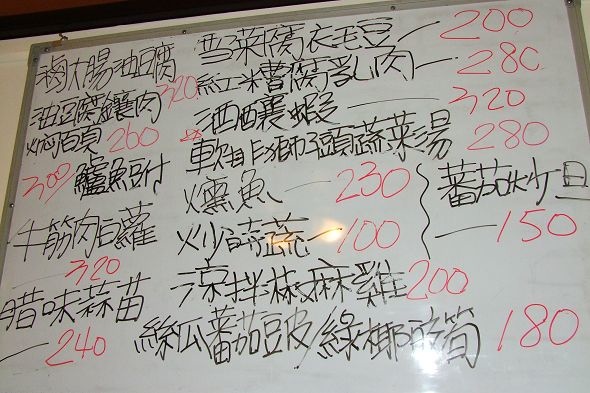 滷大腸油豆腐 320
油豆腐鑲肉
火悶百頁 260
300 鱸魚豆付
牛筋肉白蘿
320
腊味蒜苗
240
雪菜腐衣毛豆 200
紅糟腐乳肉 280
酒釀蝦 320
獅頭蔬菜湯 280
燻魚 230
炒時蔬 100
蕃茄炒旦
150
涼拌椒麻雞 200
絲瓜蕃茄豆皮/綠椰 筍 180